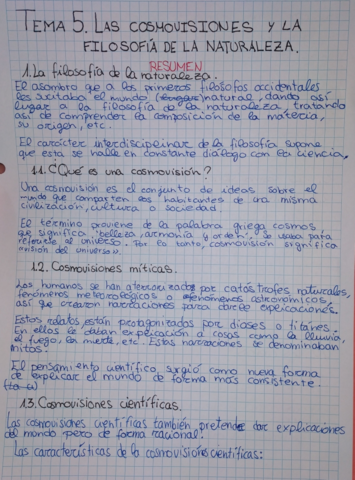 TEMA 5. LAS COSMOVISIONES Y LA
FILOSOFÍA DE LA NATURALEZA.
RESUMEN
1. La filosofía de la naturaleza.
El asombro que a los primeros filósofos occidentales
les suscitaba el mundo natural, dando así
lugar a la filosofía de la naturaleza, tratando
así de comprender la composición de la materia,
su origen, etc.
El carácter interdisciplinar de la filosofía supone
que esta se halle en constante diálogo con la ciencia.
1.1. ¿Qué es una cosmovisión?
Una cosmovisión es el conjunto de ideas sobre el
mundo que comparten los habitantes de una misma
civilización, cultura o sociedad.
El término proviene de la palabra griega cosmos,
que significa "belleza, armonía y orden". Se usaba para
referirse al universo. Por lo tanto, cosmovisión significa
"visión del universo".
1.2. Cosmovisiones míticas.
Los humanos se han aterrorizado por catástrofes naturales,
fenómenos meteorológicos o fenómenos astronómicos,
así que crearon narraciones para darles explicaciones.
Estos relatos están protagonizados por dioses o titanes.
En ellas le daban explicación a cosas como la lluvia,
el fuego, la muerte, etc. Estas narraciones se denominaban
mitos.
El pensamiento científico surgió como nueva forma
de explicar el mundo de forma más consistente.
1.3. Cosmovisiones científicas.
Las cosmovisiones científicas también pretende dar explicaciones
del mundo pero de forma racional.
Las características de la cosmovisiones científicas: